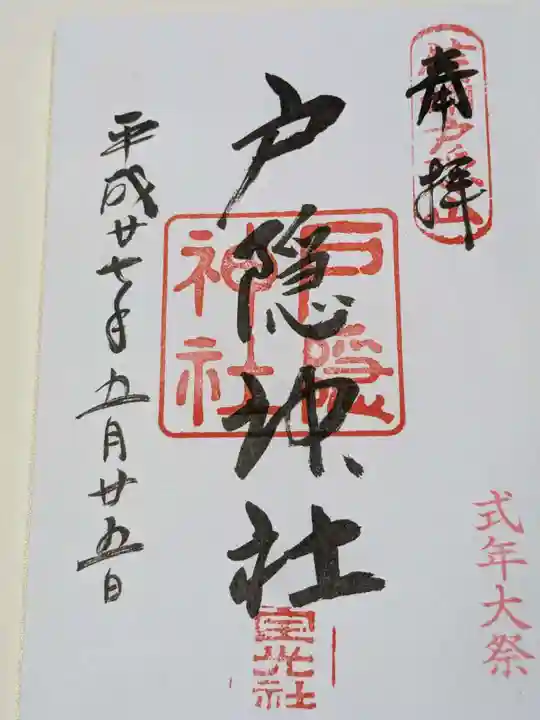 奉拝
式年大祭
戸隠神社
戸隠
神社
宝光社
平成廿七年五月廿五日